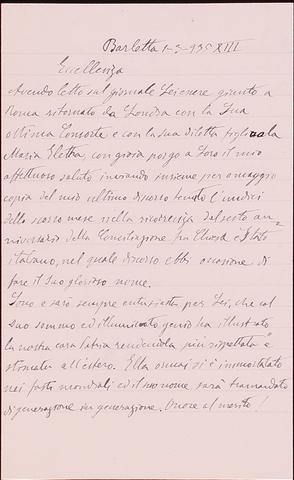 Barletta 1-3-935 XIII
Eccellenza
Avendo letto sul giornale Lei essere giunto a
Roma ritornato da Londra con la Sua
ottima Consorte e con la sua diletta figliuola
Maria Elettra, con gioia porgo a Loro il mio
affettuoso saluto, inviando insieme per omaggio
copia del mio ultimo discorso tenuto l'undici
dello scorso mese nella ricorrenza del sesto an=
niversario della Conciliazione fra Chiesa e Stato
italiano, nel quale discorso ebbi occasione di
fare il Suo glorioso nome.
Sono e sarò sempre entusiasta per Lei, che col
suo sommo ed illuminato genio ha illustrato
la nostra cara Patria rendendola più rispettata e
stimata all'estero. Ella ormai si è immortalato
nei fasti mondiali ed il suo nome sarà tramandato
di generazione in generazione. Onore al merito!